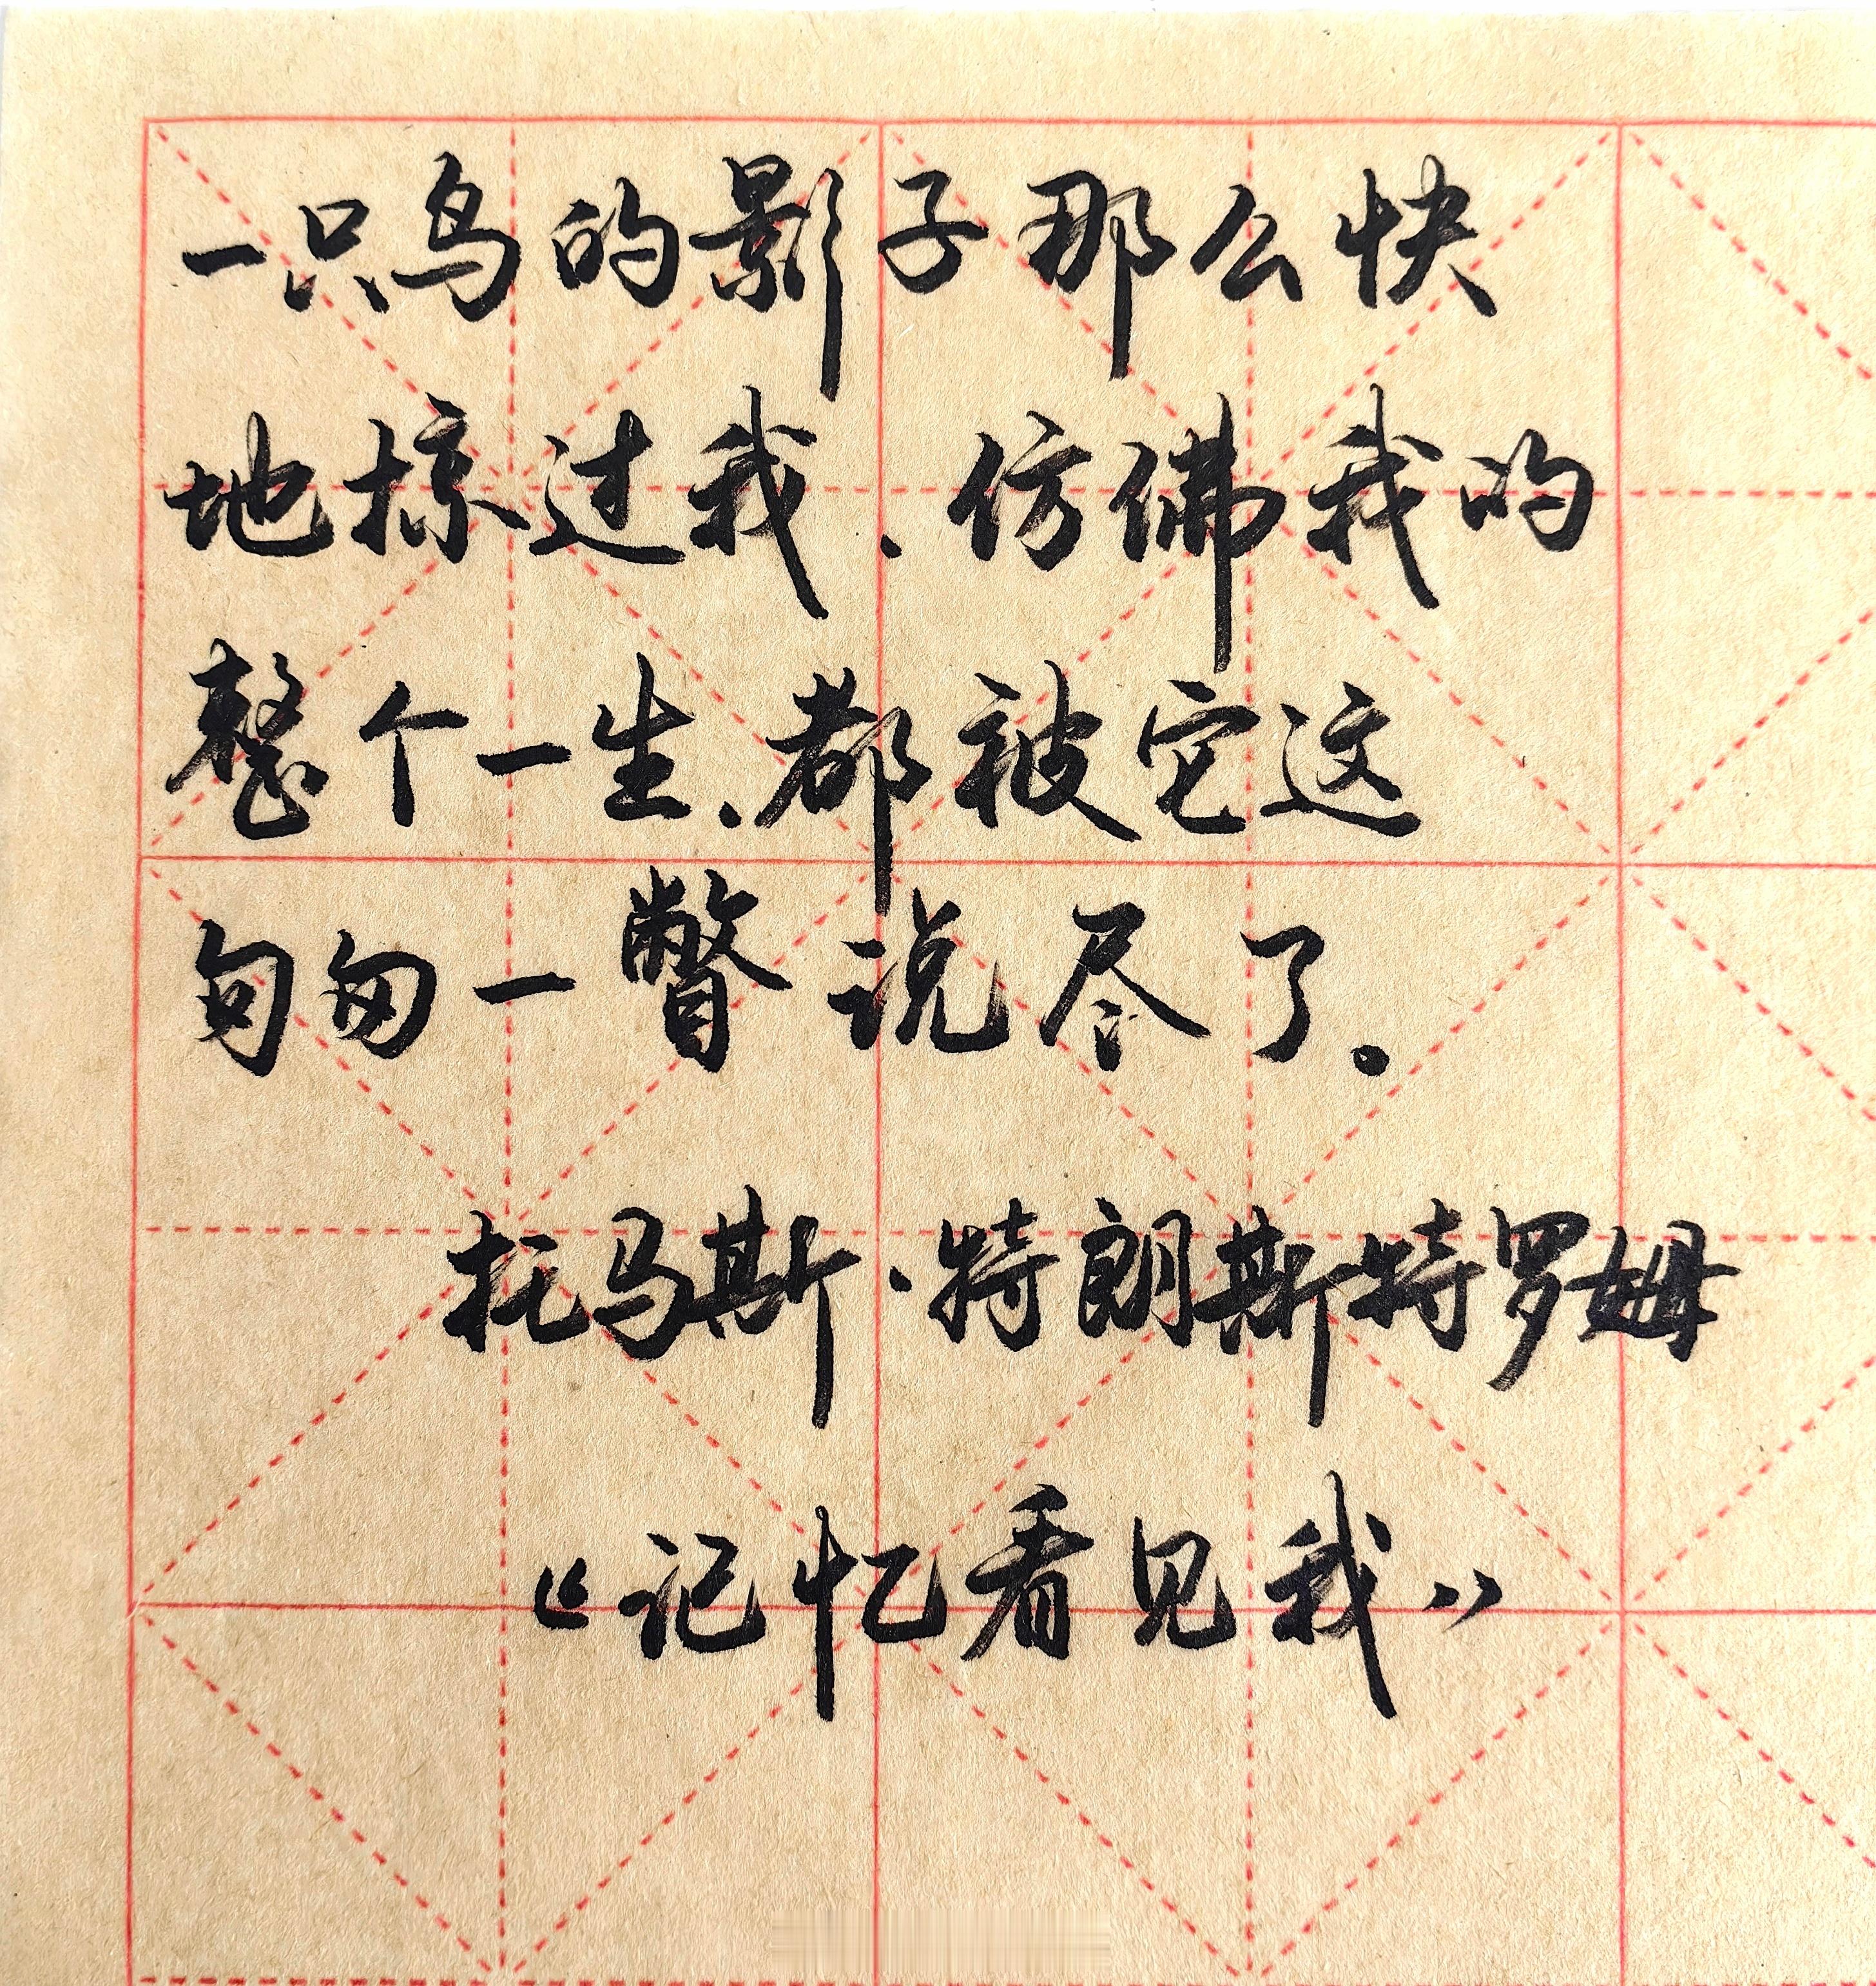 一只鸟的影子那么快
地掠过我、仿佛我的
整个一生、都被它这
匆匆一瞥说尽了。
托马斯·特朗斯特罗姆
《记忆看见我》